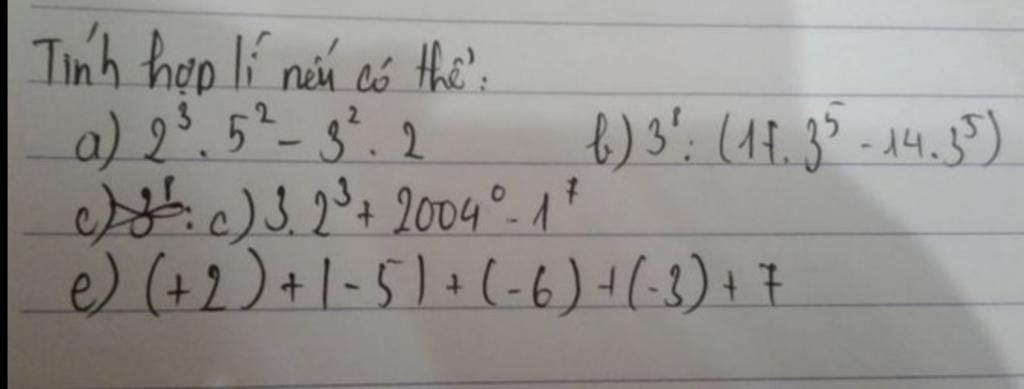 Tính hợp lí nếu có thể:
a) 2³ . 5² - 3² . 2 b) 3⁸ : (17 . 3⁵ - 14 . 3⁵)
c) 3⁸ : c) 3. 2³ + 2004⁰ - 1⁷
e) (+2) + |-5| + (-6) + (-3) + 7